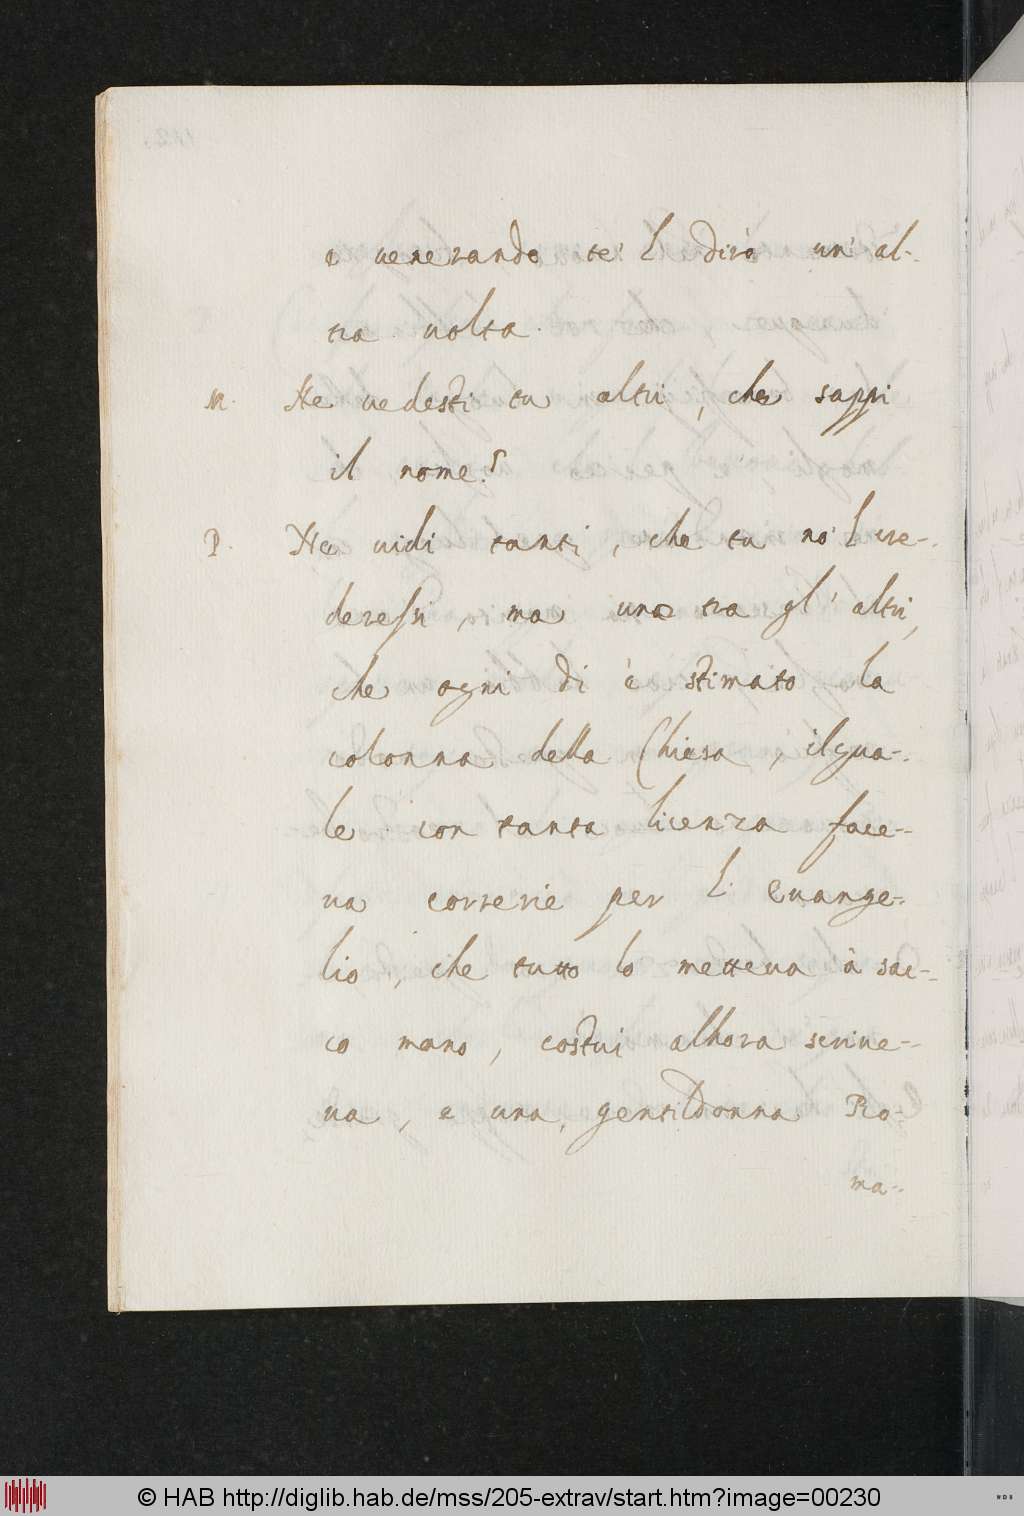 e uenerando te'l dirò un'al-
tra uolta.
M. Ne uedesti tu altri, che sappi
il nome?
P. Ne uidi tanti, che tu nò'l cre-
deressi, ma uno tra gl'altri,
che ogni dì è stimato la
colonna della Chiesa, ilqua-
le con tanta licenza face-
ua correrie per l'Euange-
lio, che tutto lo metteua à sac-
co mano, costui alhora scriue-
ua, e una, gentildonna Ro-
ma-
© HAB http://diglib.hab.de/mss/205-extrav/start.htm?image=00230